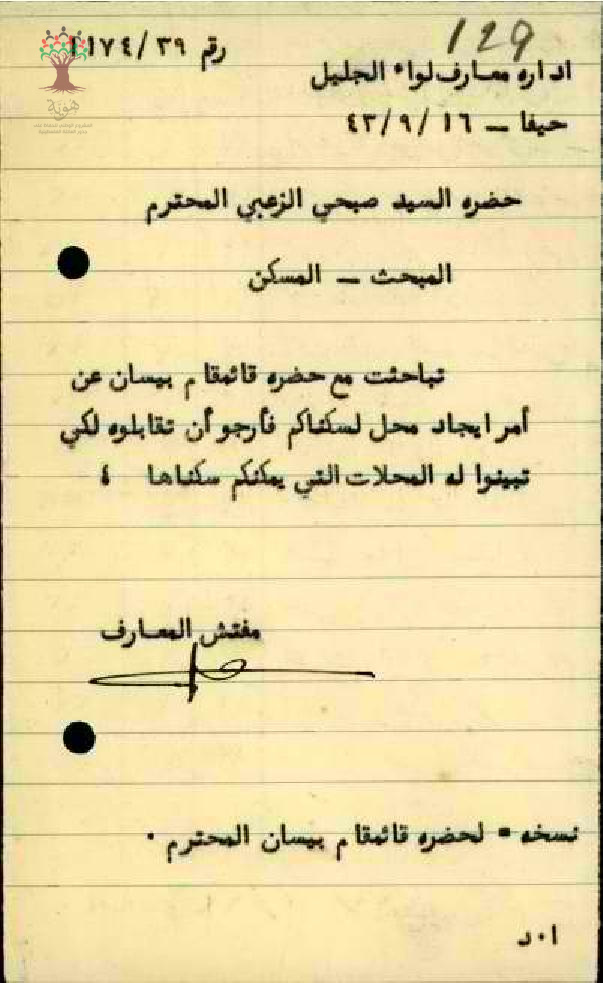 129
رقم ٣٩/١١٧٤
اداره معارف لواء الجليل
حيفا — ١٦/٩/٤٣
حضره السيد صبحي الزعبي المحترم
المبحث — المسكن
تباحثت مع حضره قائمقام بيسان عن
أمر ايجاد محل لسكناكم فأرجو أن تقابلوه لكي
تبينوا له المحلات التي يمكنكم سكناها ؛
مفتش المعارف
نسخه = لحضره قائمقام بيسان المحترم .
ا.د
هوية